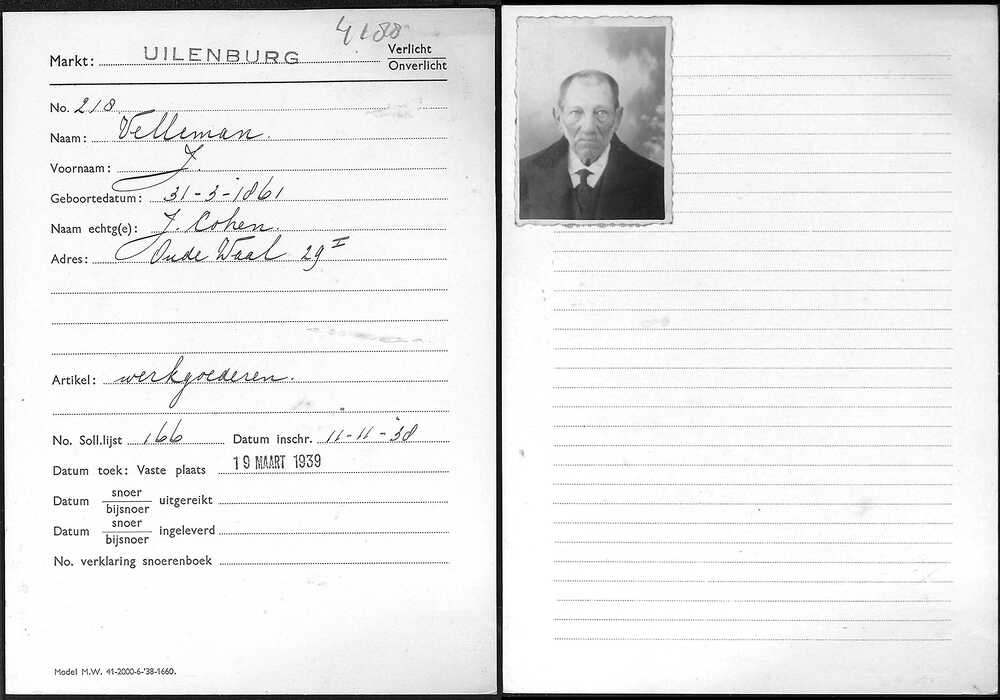 4188
Markt: UILENBURG Verlicht
Onverlicht
No. 218
Naam: Velleman.
Voornaam: J.
Geboortedatum: 31-3-1861
Naam echtg(e): J. Cohen.
Adres: Oude Waal 29 I
Artikel: werkgoederen.
No. Soll.lijst 166 Datum inschr. 11-11-'38
Datum toek: Vaste plaats 19 MAART 1939
Datum snoer/bijsnoer uitgereikt
Datum snoer/bijsnoer ingeleverd
No. verklaring snoerenboek
Model M.W. 41-2000-6-'38-1660.